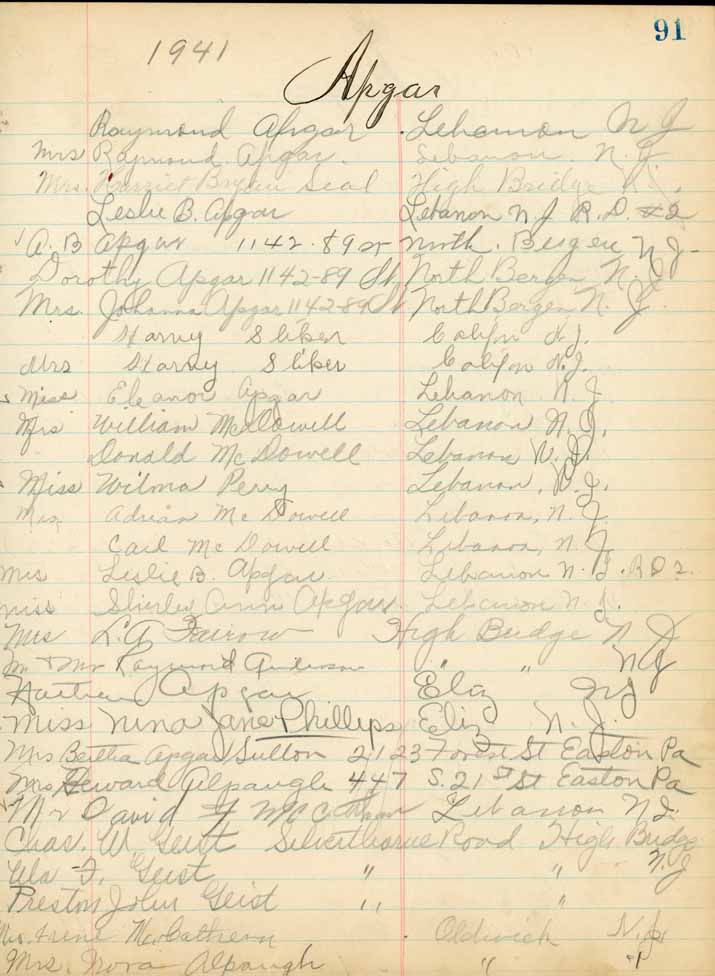 91
1941
Apgar
Raymond Apgar Lebanon N J
Mrs Raymond Apgar. Lebanon. N. J.
Mrs. Harriet Bryan Seal High Bridge
Leslie B. Apgar Lebanon N J R. D. #2
A. B Apgar 1142-89 St North. Bergen N J
Dorothy Apgar 1142-89 St. North Bergen N. J.
Mrs. Johanna Apgar 1142-89 St North Bergen N. J.
Harvey Sliker Califon N.J.
Mrs Harvey Sliker Califon N.J.
Miss Eleanor Apgar Lebanon N. J.
Mrs William McDowell Lebanon N. J.
Donald McDowell Lebanon N. J.
Miss Wilma Perry Lebanon, N. J.
Mrs Adrian McDowell Lebanon, N. J.
Carl McDowell Lebanon, N. J
Mrs Leslie B. Apgar Lebanon N. J. R D 2.
Miss Shirley Ann Apgar. Lebanon N. J.
Mrs L. A Fairow High Bridge N J
Mr + Mrs Raymond Anderson " " N J
Apgar Eliz N J
Miss Nina Jane Phillips Eliz N. J.
Mrs Bertha Apgar Sutton 2123 Forest St Easton Pa
Mrs Howard Alpaugh 447 S. 21st St Easton Pa
Mr David F Lebanon N J.
Chas. W. Geist Silverthorne Road High Bridge
Ula F. Geist " " N. J
Preston John Geist " "
Mrs. Irene McCathern Oldwick N. J.
Mrs. Nora Alpaugh " "